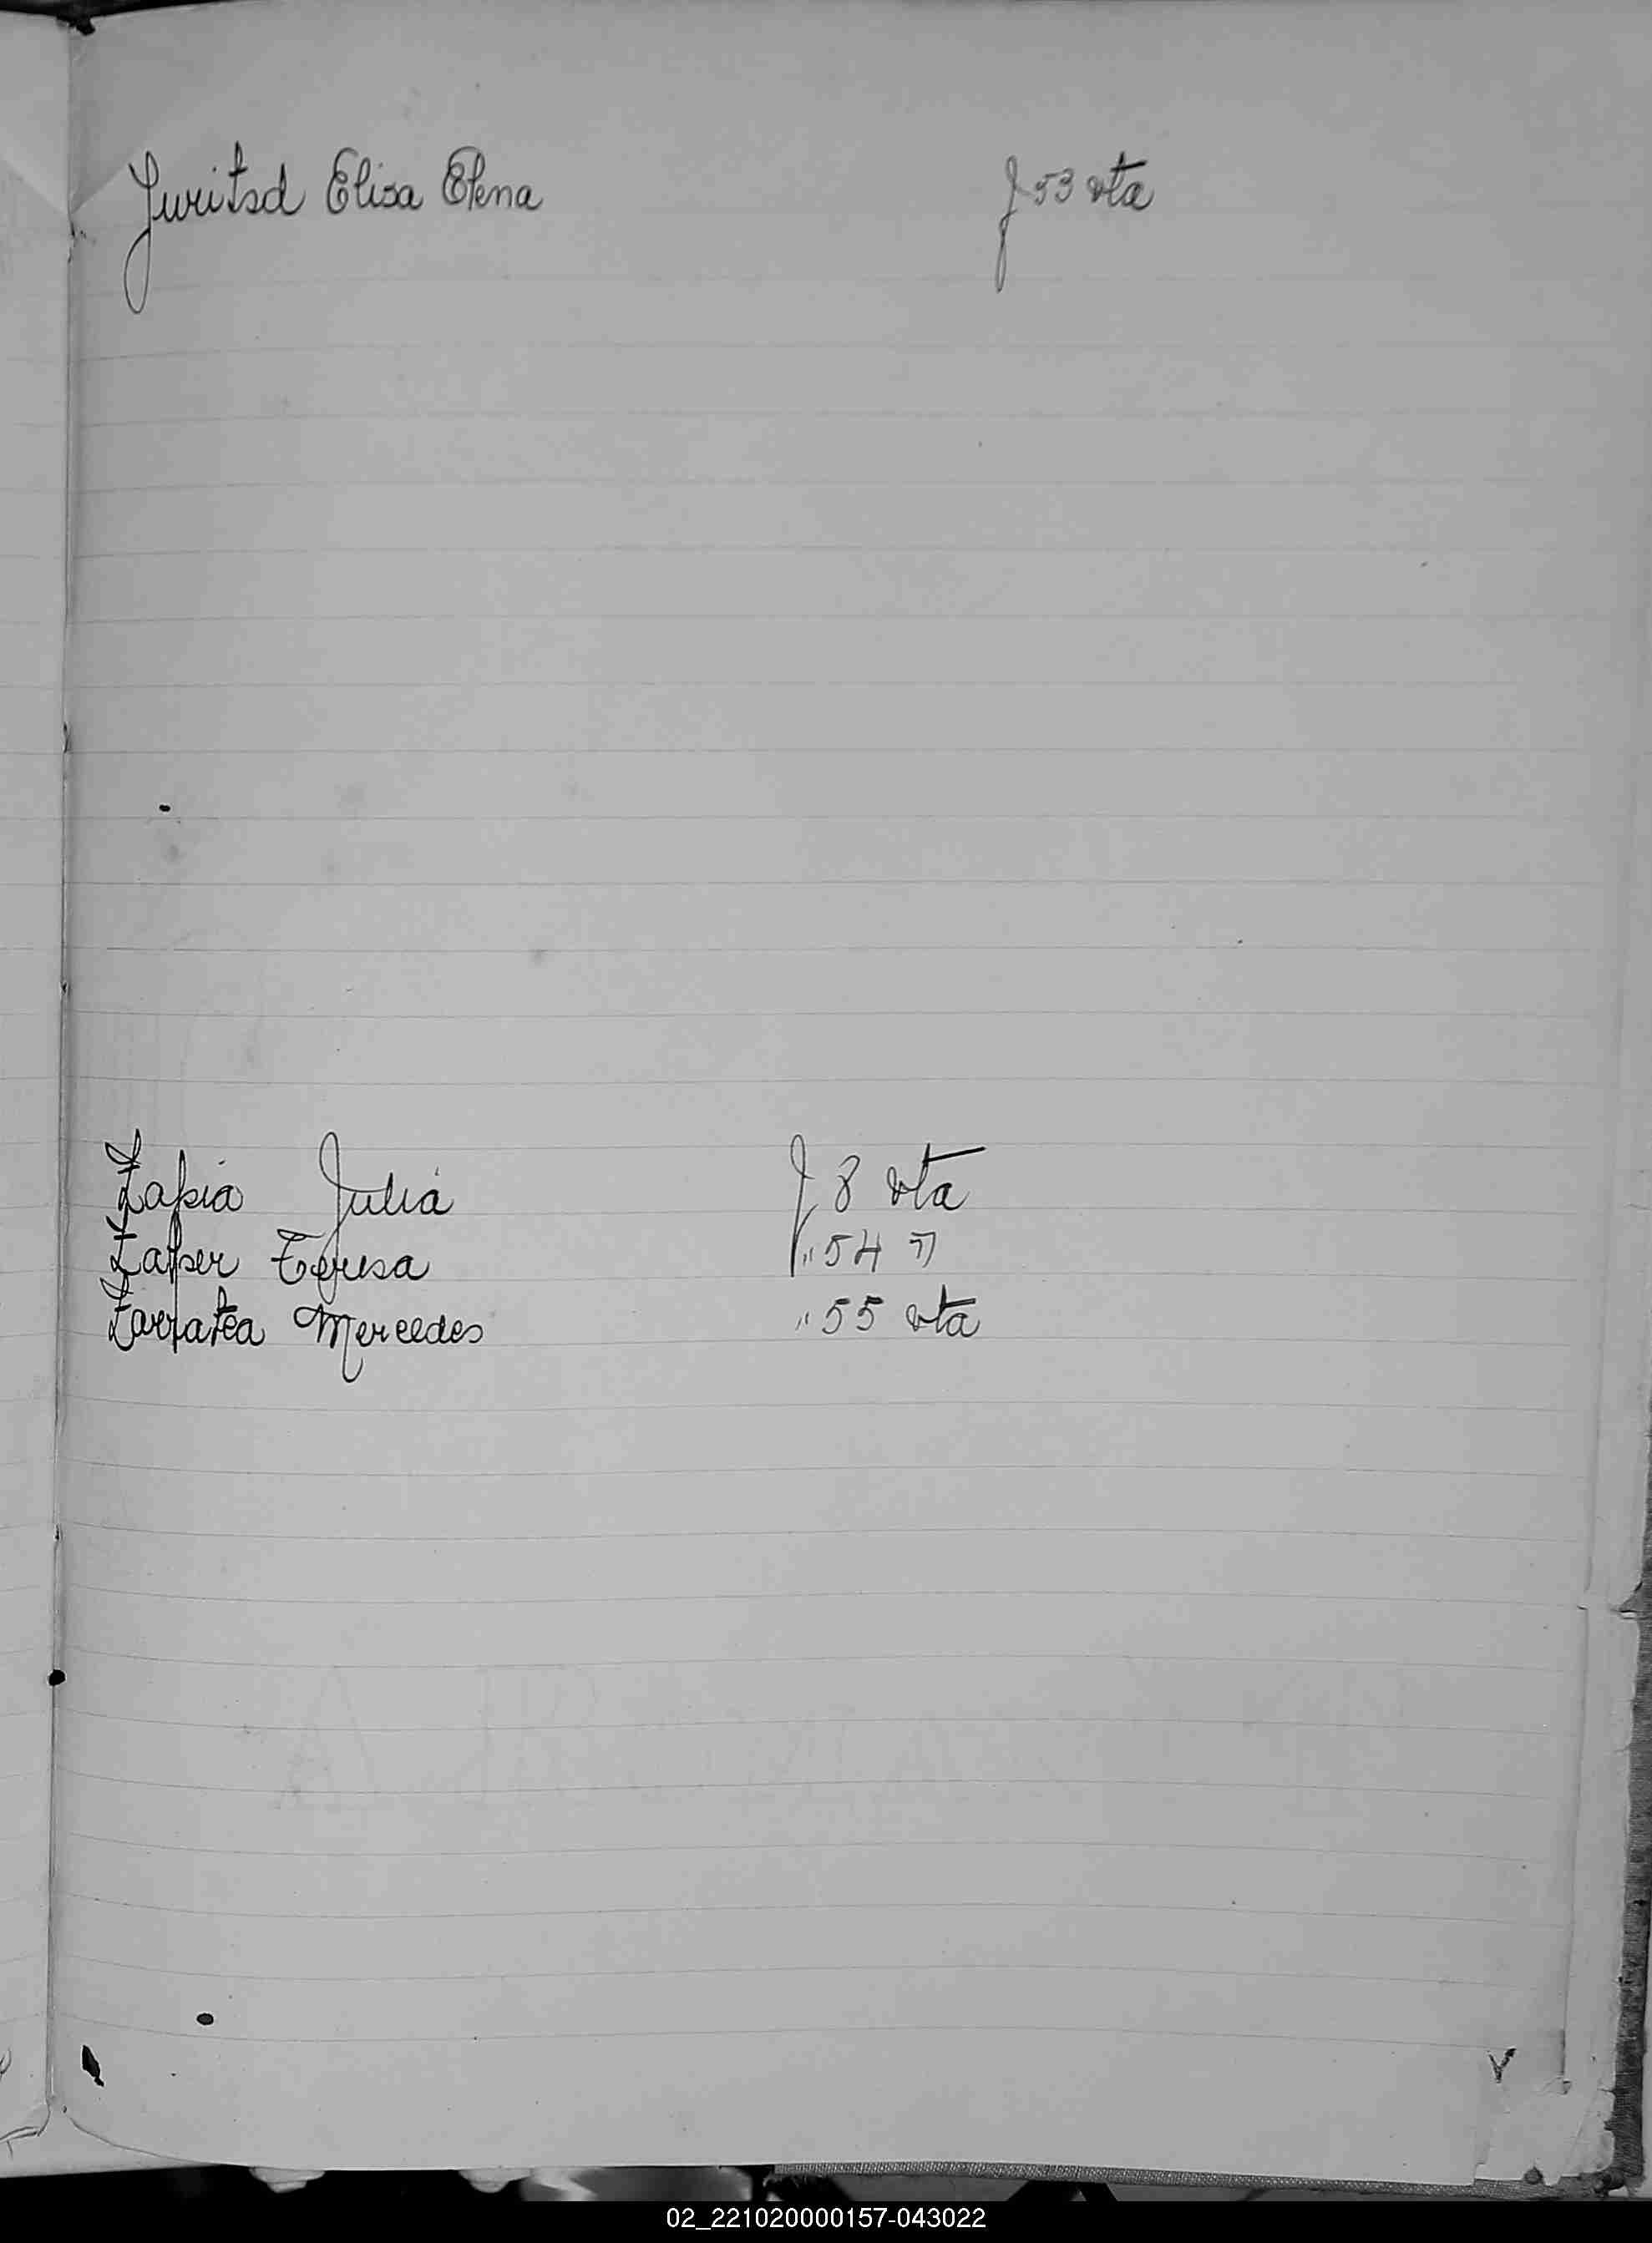 Elisa Elena f 53 vta
Zapia Julia f 8 vta
Teresa " 54 "
Zarratea Mercedes " 55 vta
Y
02_221020000157-043022